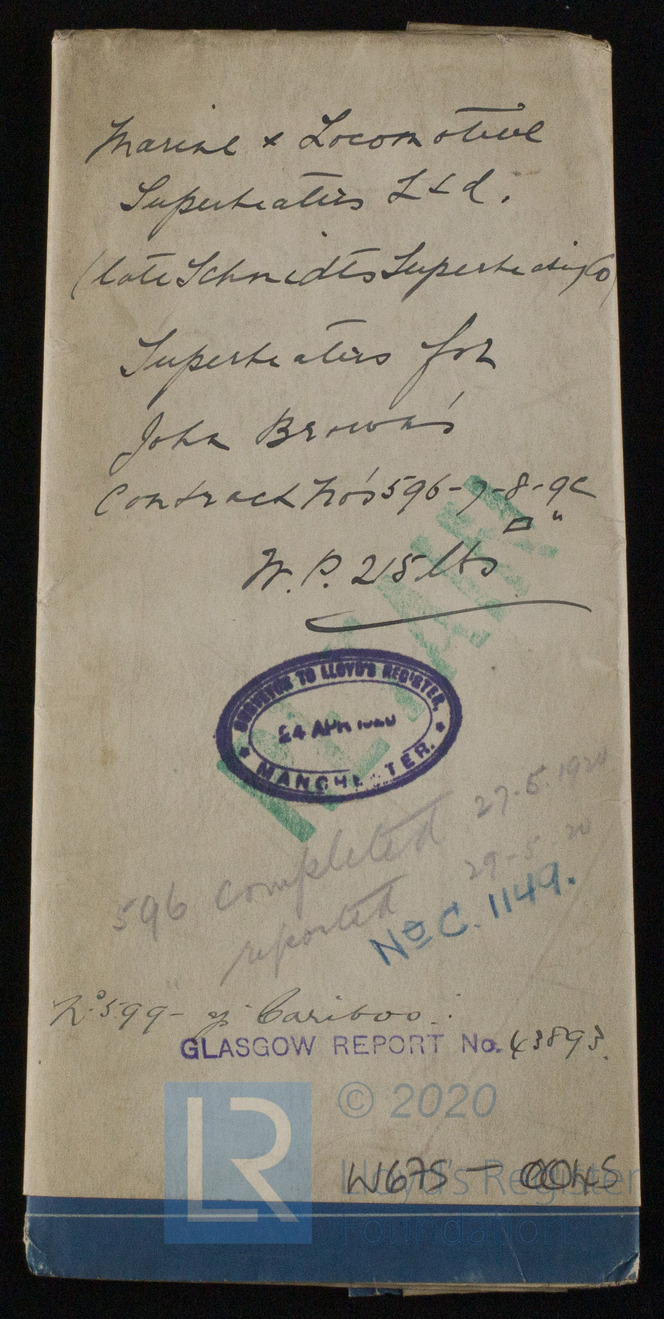 Marine & Locomotive
Superheaters Ltd.
(late Schmidts Superheating Co)
Superheaters for
John Brown's
Contract No's 596-7-8-9c
W.P. 215 lbs □"
SURVEYOR TO LLOYD'S REGISTER,
24 APR 1920
MANCHESTER.
596 completed 27-5-1920
reported 29-5-20
No C. 1149.
No 599 - Cariboo.
GLASGOW REPORT No. 43893.
LR
© 2020
Lloyd's Register
Foundation
W675 - 0045